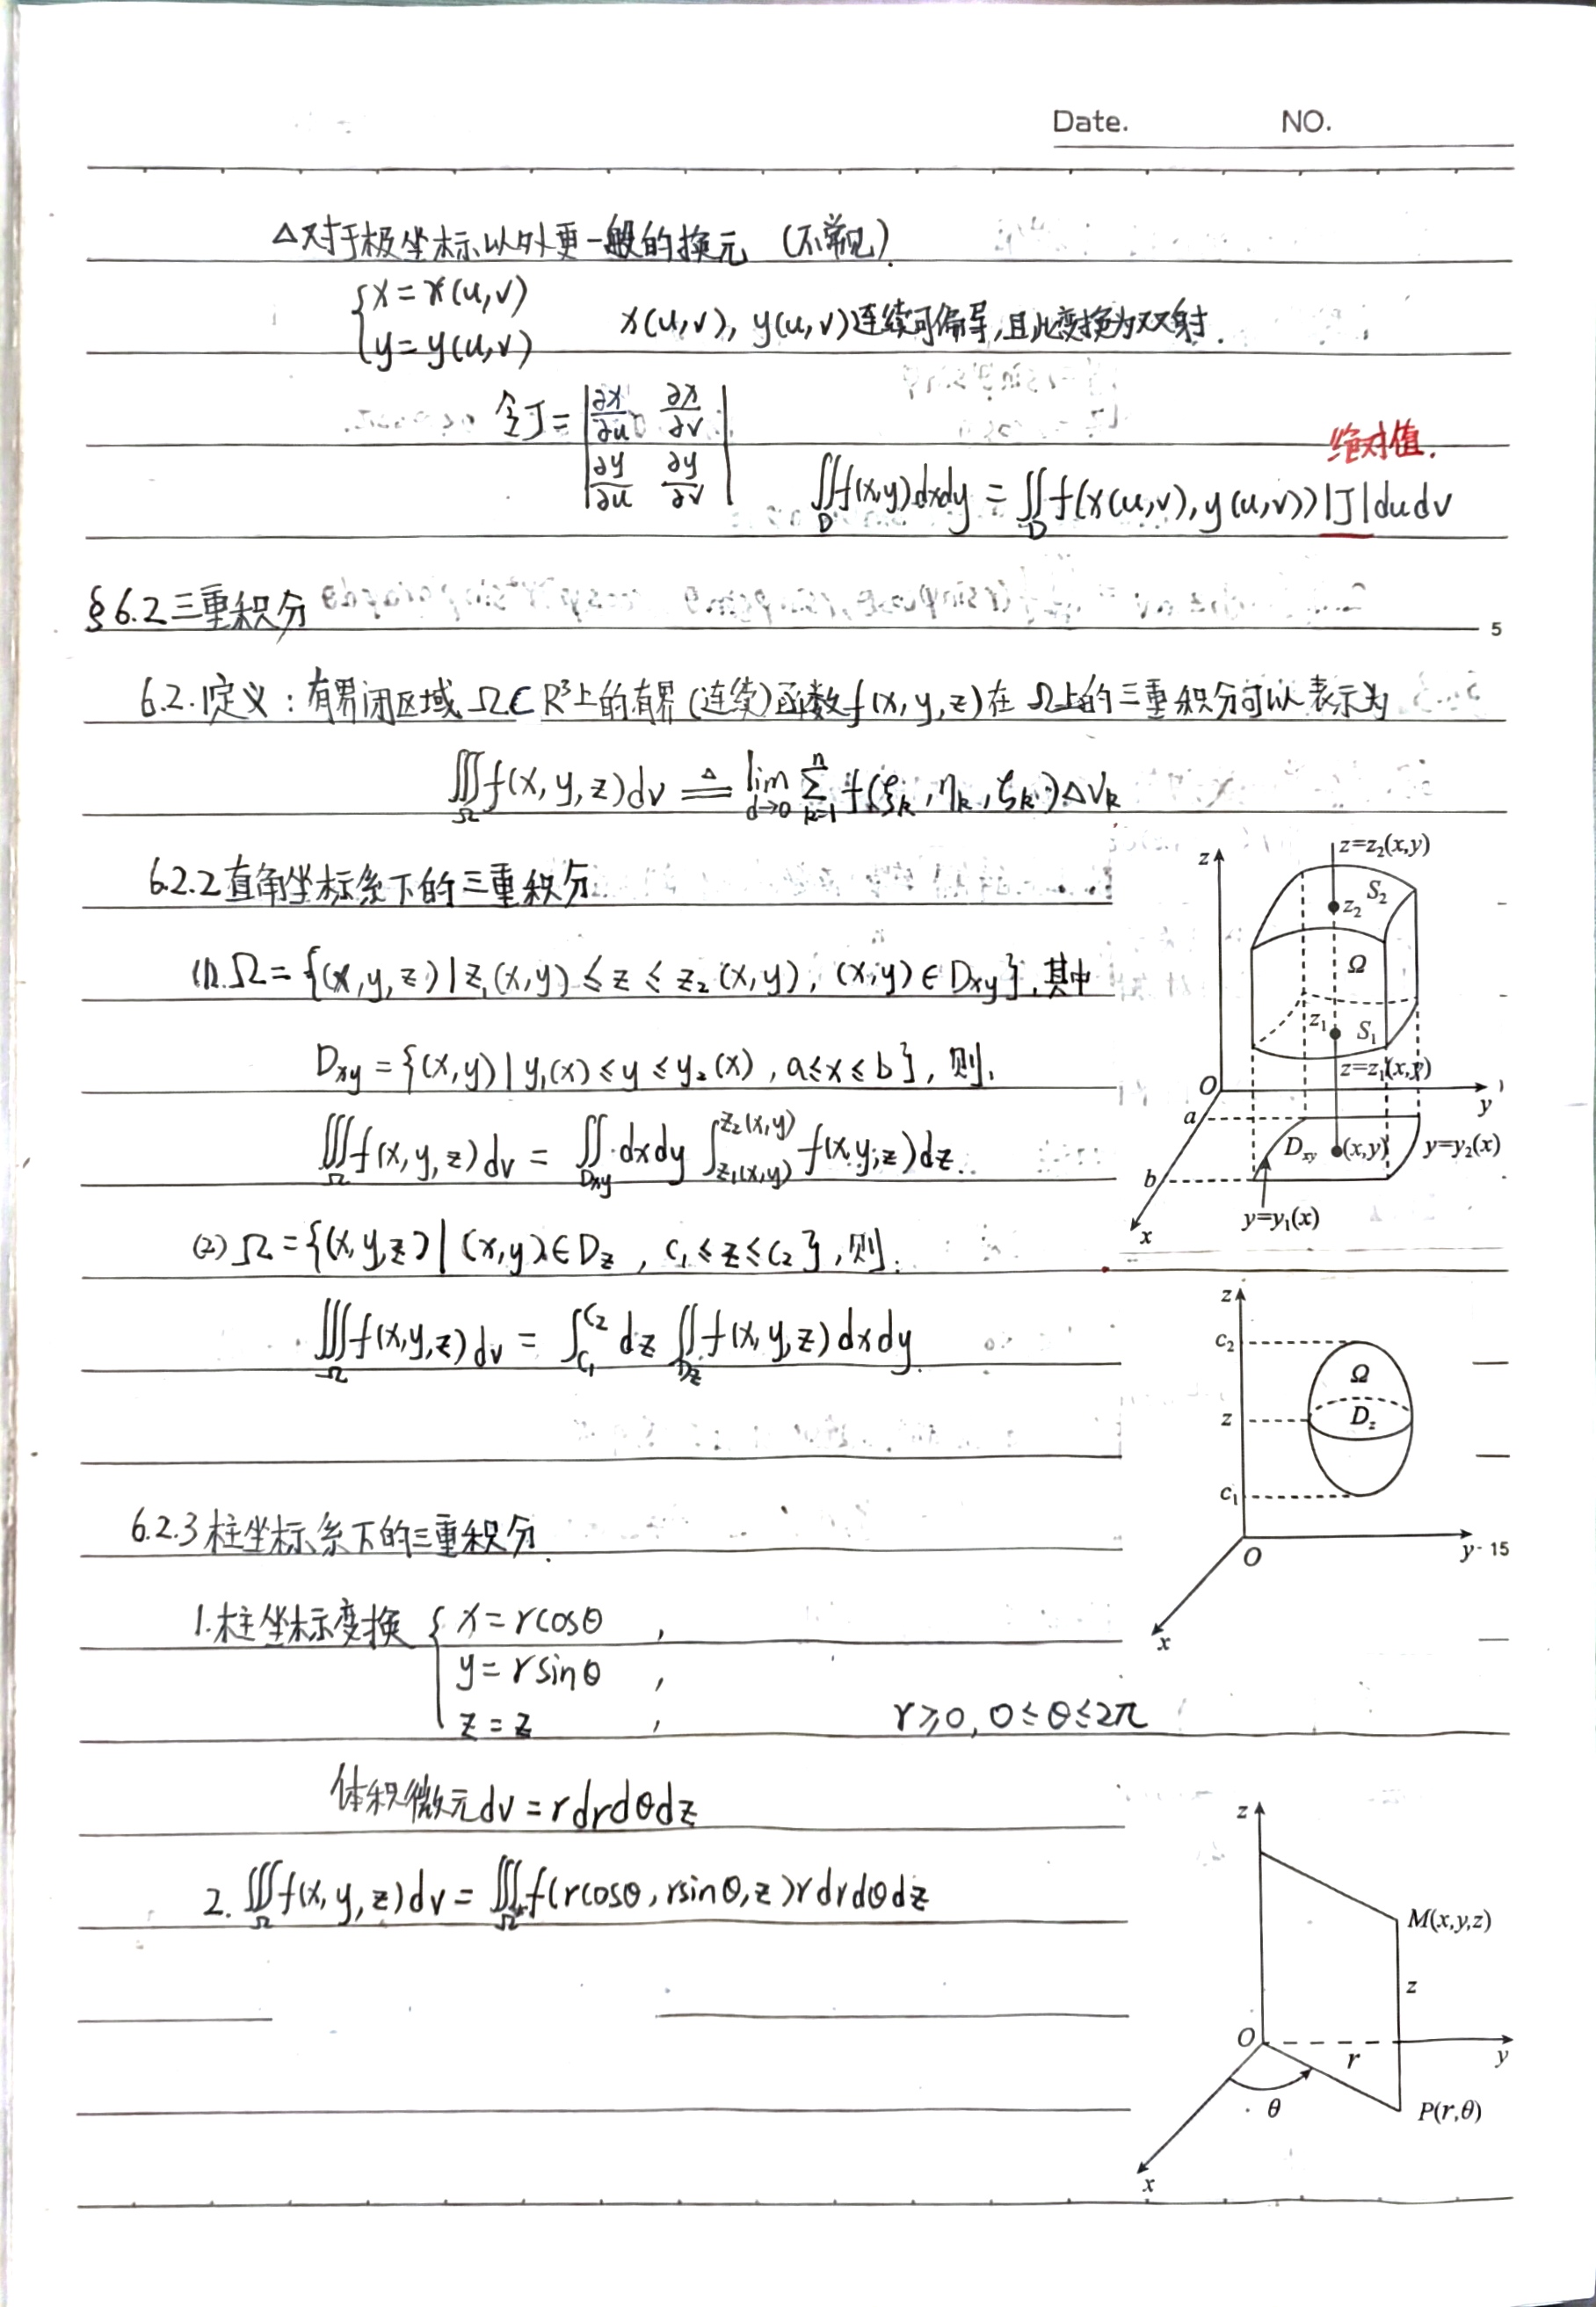 Date. NO.
△对于极坐标以外更一般的换元 (不常见).
{x=x(u,v)
y=y(u,v) x(u,v), y(u,v)连续可偏导,且此变换为双射.
令J=|∂x/∂u ∂x/∂v
∂y/∂u ∂y/∂v|
绝对值.
∬_D f(x,y)dxdy = ∬_D f(x(u,v),y(u,v))|J|dudv
§6.2三重积分
5
6.2.1定义:有界闭区域Ω⊂R³上的有界(连续)函数f(x,y,z)在Ω上的三重积分可以表示为
∭_Ω f(x,y,z)dv ≜ lim_{d→0} Σ_{k=1}^{n} f(ξ_k,η_k,ζ_k)ΔV_k
6.2.2直角坐标系下的三重积分
(1).Ω={(x,y,z)|z₁(x,y)≤z≤z₂(x,y), (x,y)∈D_xy},其中
D_xy={(x,y)|y₁(x)≤y≤y₂(x), a≤x≤b},则.
∭_Ω f(x,y,z)dv = ∬_{D_xy} dxdy ∫_{z₁(x,y)}^{z₂(x,y)} f(x,y,z)dz.
(2)Ω={(x,y,z)|(x,y)∈D_z, c₁≤z≤c₂},则.
∭_Ω f(x,y,z)dv = ∫_{c₁}^{c₂} dz ∬_{D_z} f(x,y,z)dxdy.
z
z=z₂(x,y)
z₂ S₂
Ω
z₁ S₁
z=z₁(x,y)
O y
a
D_xy (x,y) y=y₂(x)
b
y=y₁(x)
x
z
c₂
Ω
z D_z
c₁
O y 15
x
6.2.3柱坐标系下的三重积分.
1.柱坐标变换{x=rcosθ ,
y=rsinθ ,
z=z , r≥0, 0≤θ≤2π
体积微元dv=rdrdθdz
2. ∭_Ω f(x,y,z)dv = ∭_Ω* f(rcosθ,rsinθ,z)rdrdθdz
z
M(x,y,z)
z
O r y
θ P(r,θ)
x